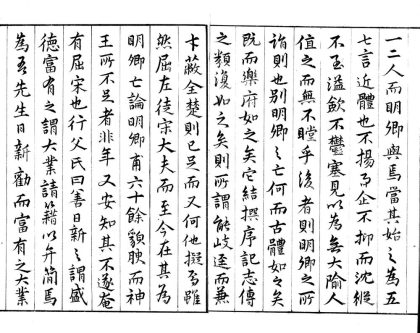 一二人而明卿與焉當其始之為五
七言近體也不揚而企不抑而沈縱
不至溢歛不鬱塞見以為無大隃人
值之而無不瞠乎後者則明卿之所
詣則也別明卿之亡何而古體如之矣
既而樂府如之矣它結撰序記志傳
之類復如之矣則所謂能岐逕而兼
卞蔽全楚則已吕而又何他擬焉雖
然屈左徒宋大夫而至今在其為
明卿亡論明卿甫六十餘貌腴而神
王所不足者非年又安知其不遂奄
有屈宋也行父氏曰善日新之謂盛
德富有之謂大業請籍以弁簡焉
為吾先生日新勸而富有之大業